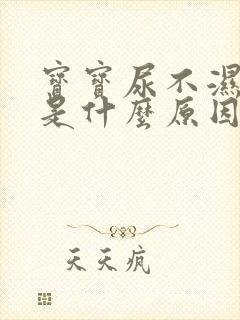 寶寶尿不濕
是什麼原因
天天疯